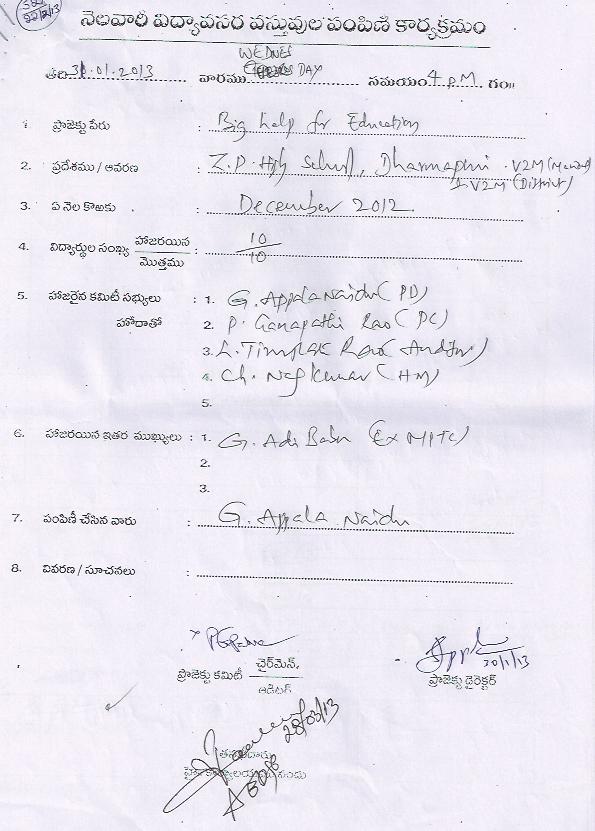 22/2/13
నెలవారీ విద్యావసర వస్తువుల పంపిణీ కార్యక్రమం
WEDNES
తేది 30.01.2013 వారము DAY సమయం 4 P.M. గం॥
1. ప్రాజెక్టు పేరు : Big help for Education
2. ప్రదేశము / ఆవరణ : Z.P. High School, Dharmapuri . VZM (Mandal)
& VZM (District)
3. ఏ నెల కొఱకు : December 2012
4. విద్యార్థుల సంఖ్య హాజరయిన : 10
మొత్తము 10
5. హాజరైన కమిటీ సభ్యులు : 1. G. Appala Naidu (PD)
హోదాతో 2. P. Ganapathi Rao (PC)
3. Rao (Auditor)
4. Ch. Naj Kumar (HM)
5.
6. హాజరయిన ఇతర ముఖ్యులు : 1. G. Adi Babu (Ex MPTC)
2.
3.
7. పంపిణీ చేసిన వారు : G. Appala Naidu
8. వివరణ / సూచనలు :
30/1/13
ప్రాజెక్టు కమిటీ చైర్మెన్,
ఆడిటర్
ప్రాజెక్టు డైరెక్టర్